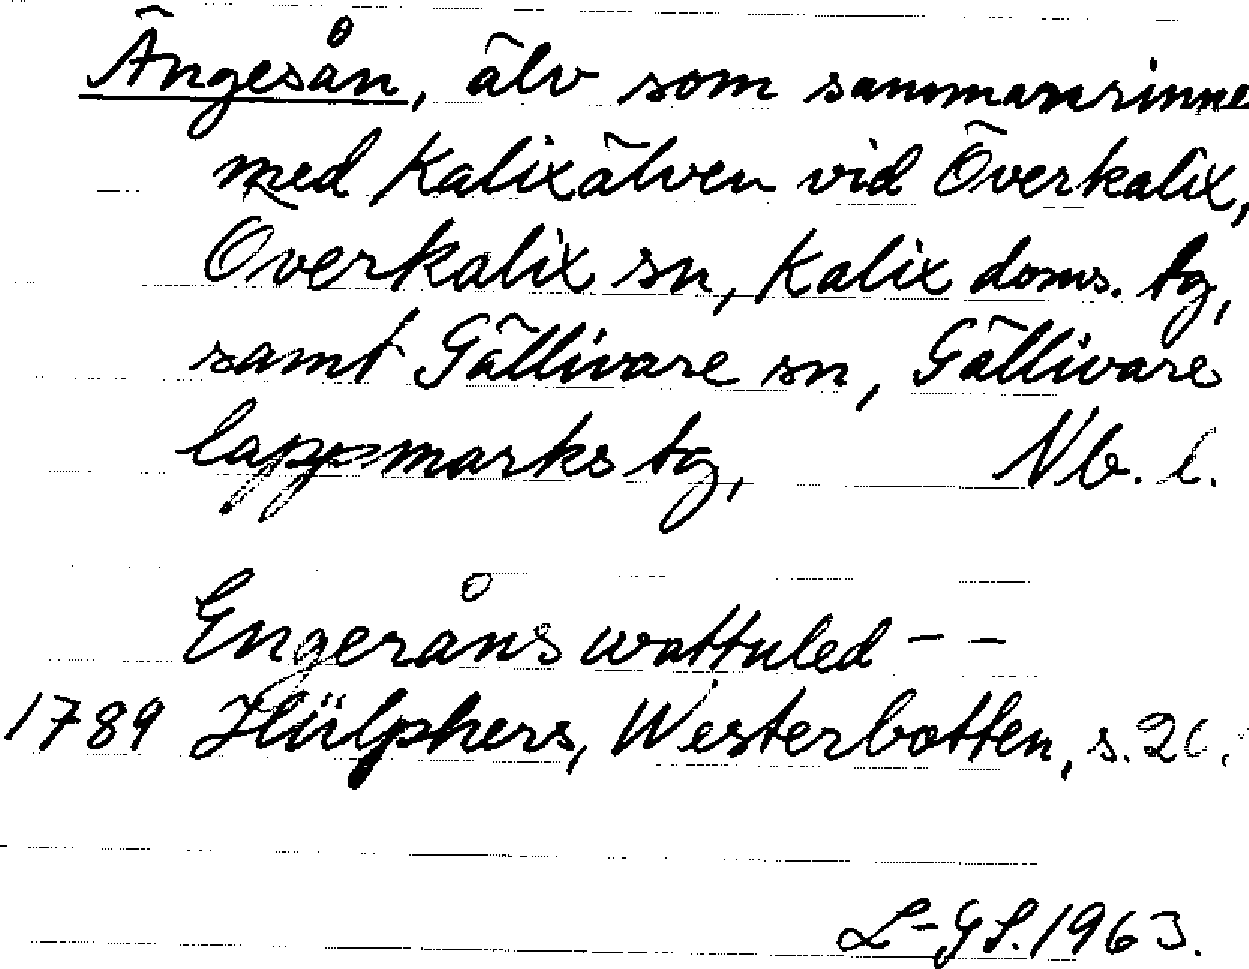 Ängesån, älv som sammanrinne
med Kalixälven vid Överkalix,
Överkalix sn, Kalix doms. tg,
samt Gällivare sn, Gällivare
lappmarks tg, Nb. l.
Engeråns wattuled - -
1789 Hülphers, Westerbotten, s.
L-GS. 1963.